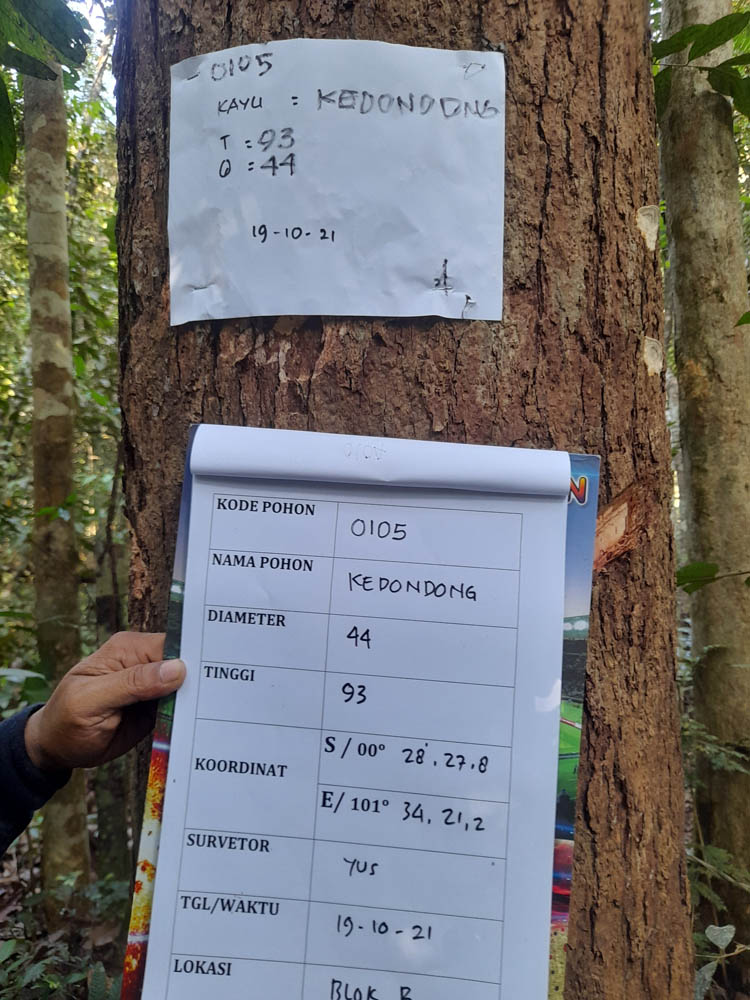 0105
KAYU : KEDONDONG
T = 93
Q = 44
19-10-21
N
KODE POHON 0105
NAMA POHON KEDONDONG
DIAMETER 44
TINGGI 93
KOORDINAT S / 00° 28', 27,8
E/ 101° 34, 21,2
SURVETOR YUS
TGL/WAKTU 19-10-21
LOKASI BLOK B